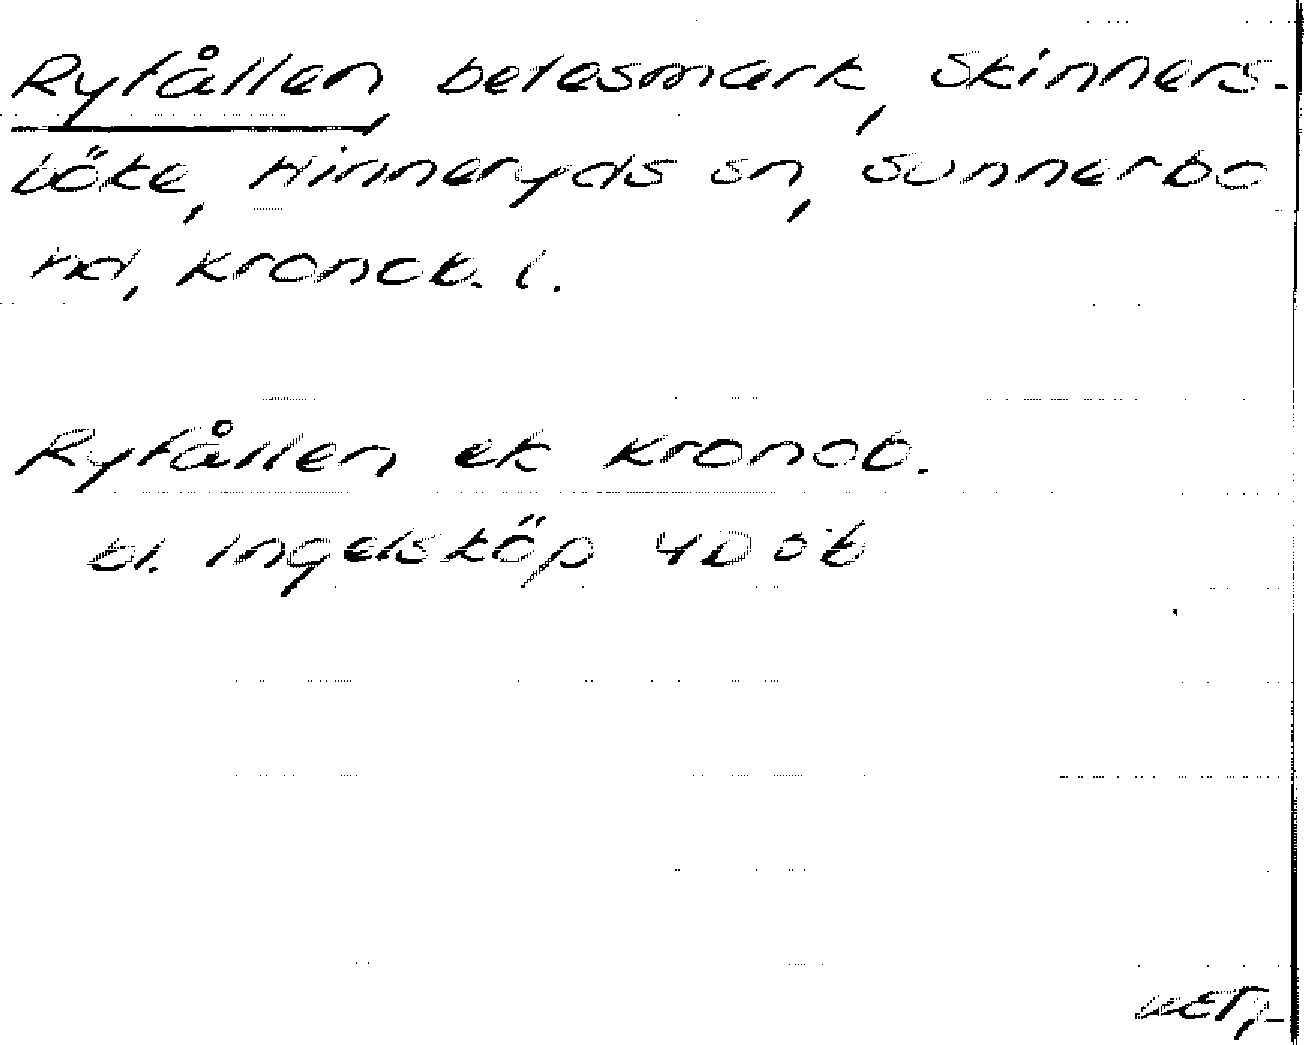 Ryfållen, betesmark, Skinners-
böke, Hinneryds sn, Sunnerbo
hd, Kronob. l.
Ryfållen ek Kronob.
bl. Ingelsköp 4D ob